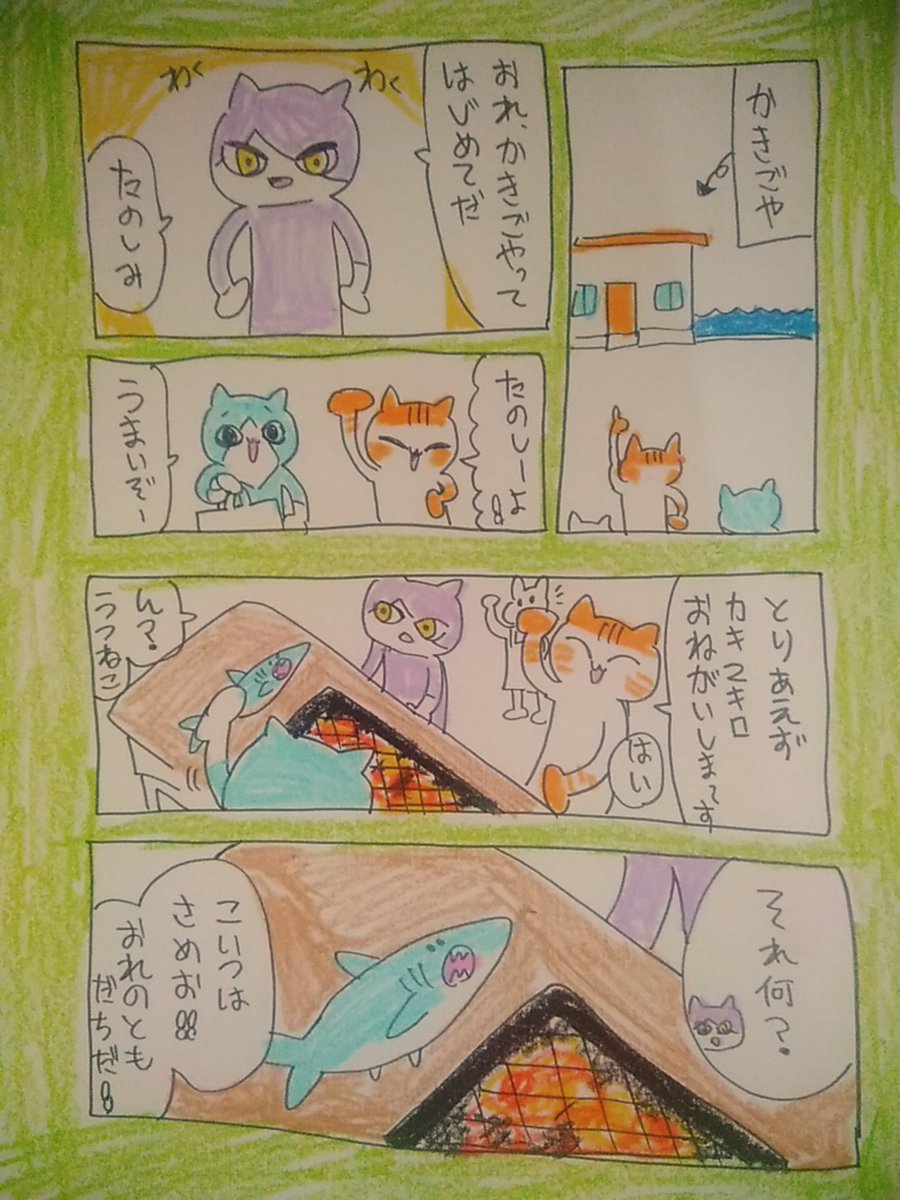 かきごや
おれ、かきごやって
はじめてだ
わく
わく
たのしみ
たのしーよ
うまいぞー
とりあえず
カキ2キロ
おねがいしまーす
はい
ん?
うつねこ
それ何?
こいつは
さめお!!
おれのとも
だちだ!